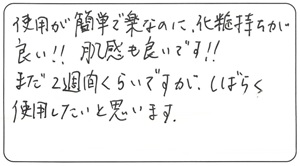 使用が簡単で楽なのに、化粧持ちが
良い!! 肌感も良いです!!
まだ2週間くらいですが、しばらく
使用したいと思います.